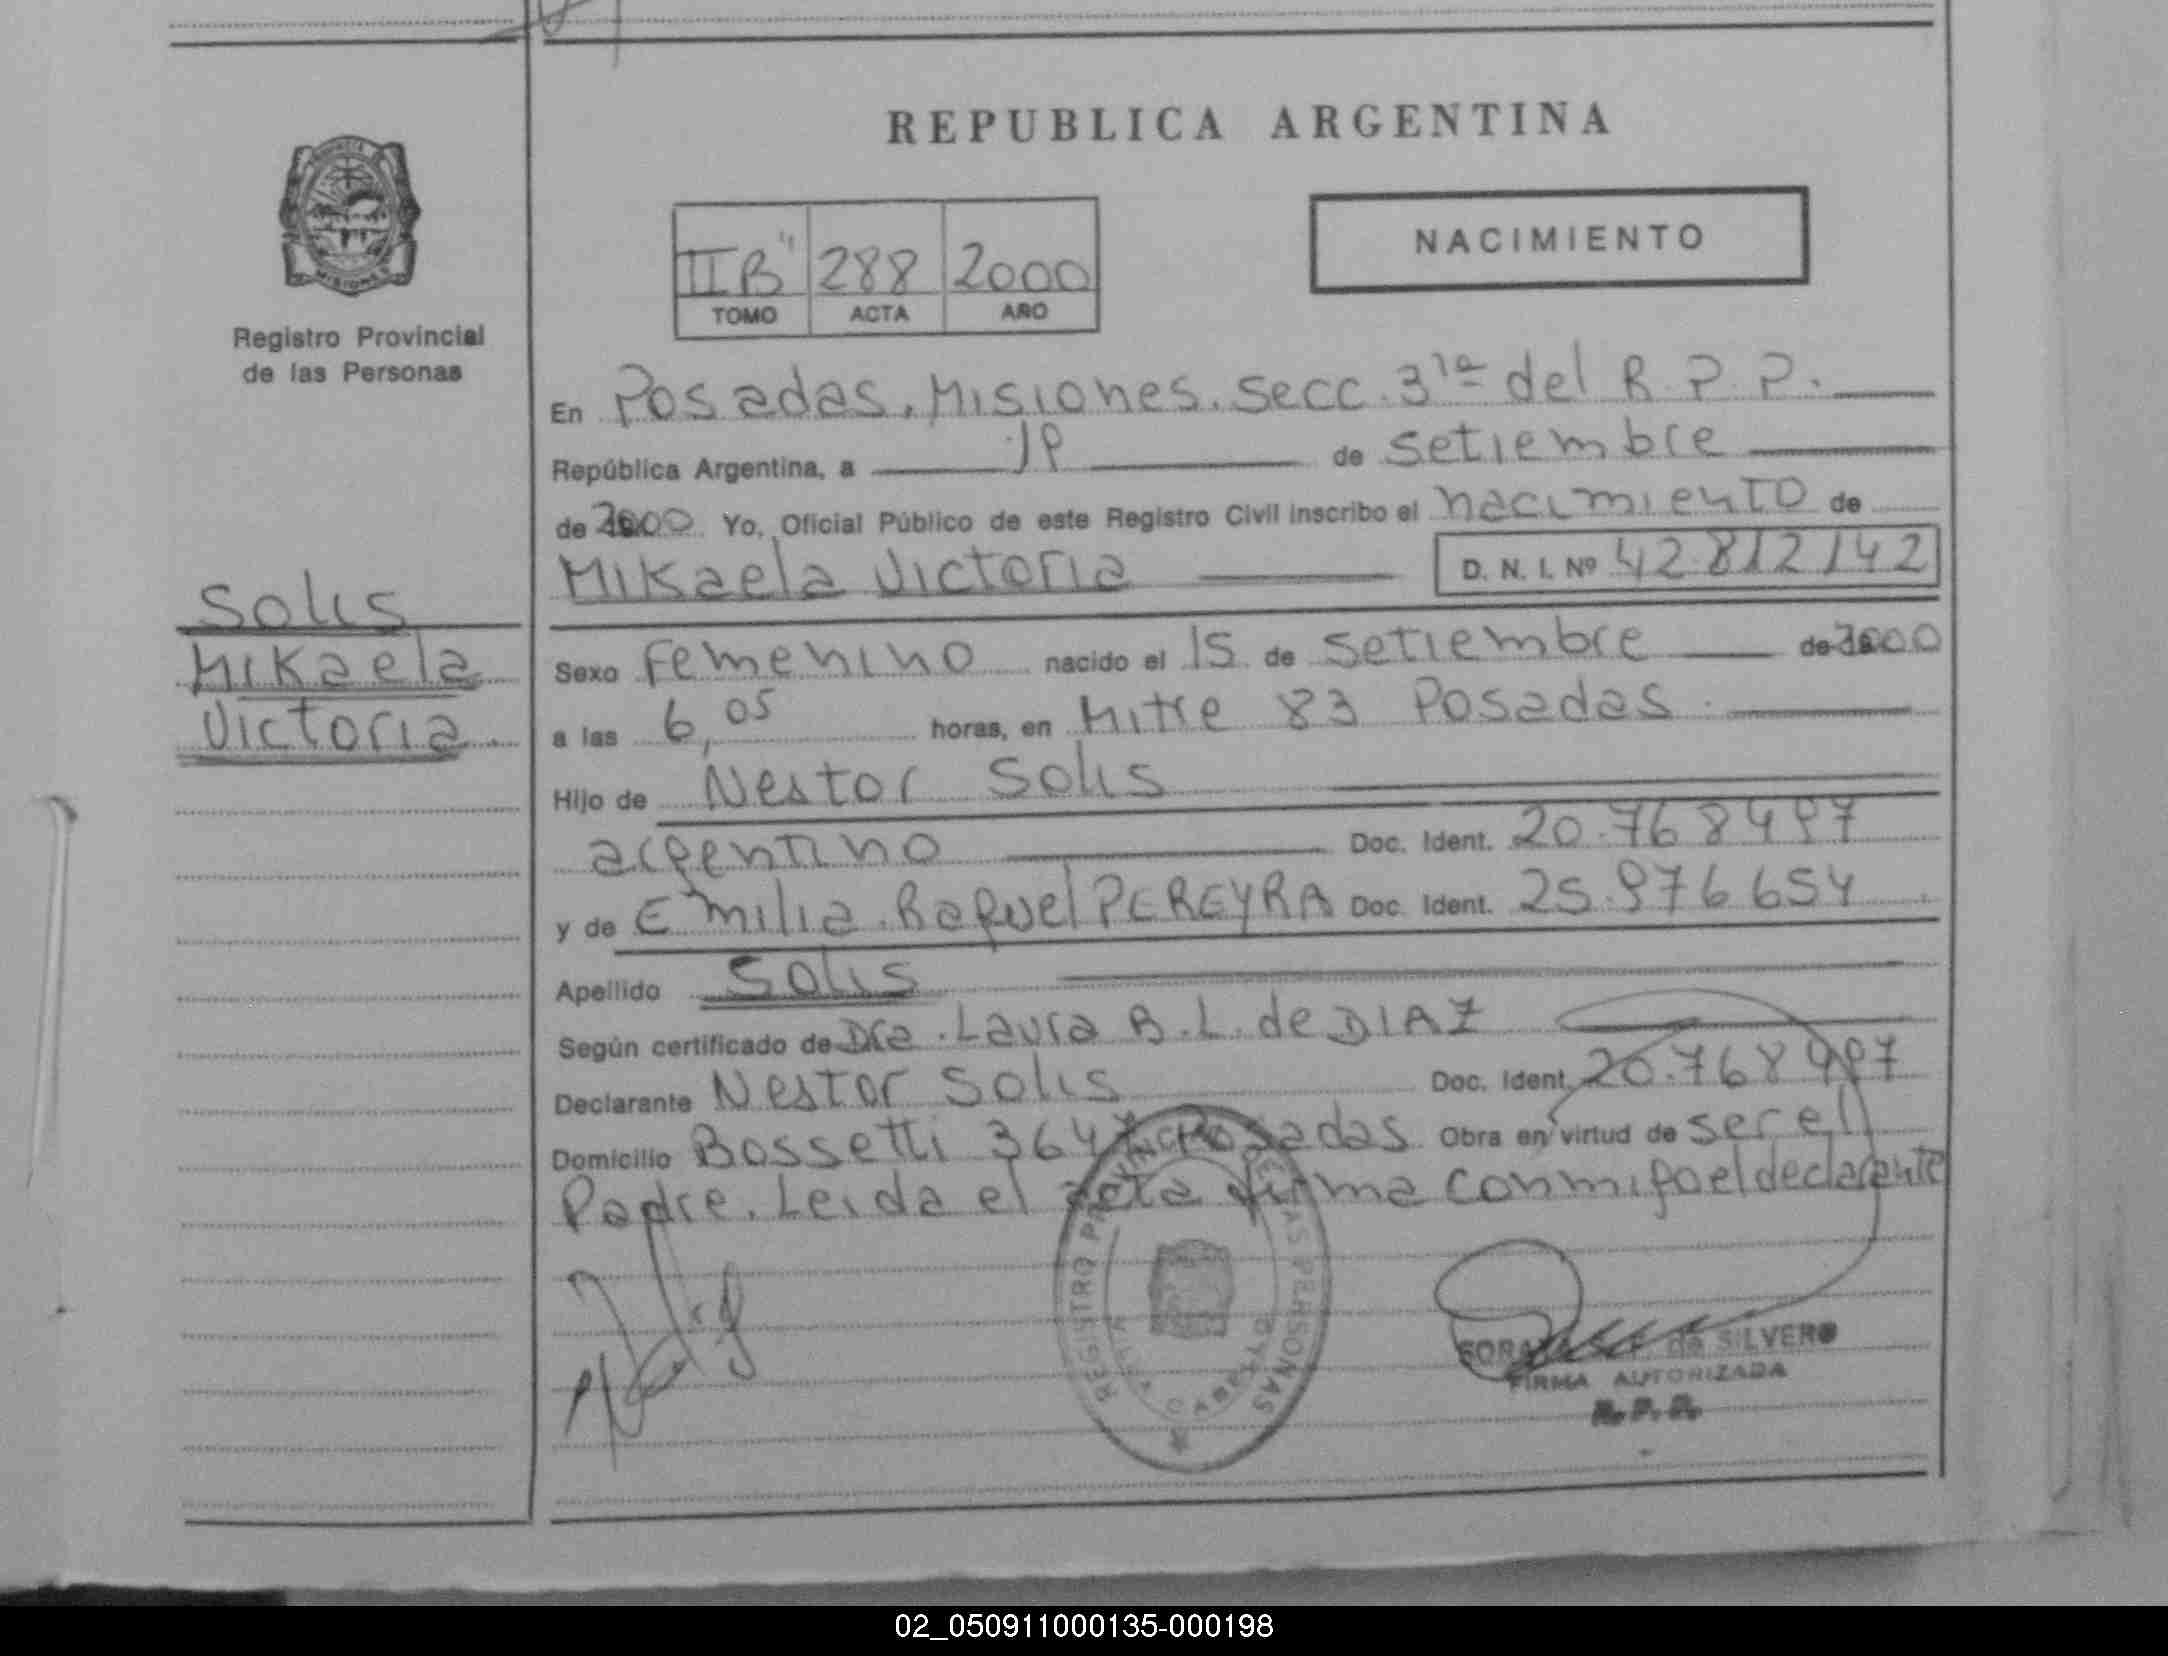 REPUBLICA ARGENTINA
PROVINCIA DE
MISIONES
Registro Provincial
de las Personas
NACIMIENTO
II B" 288 2000
TOMO ACTA AÑO
En Posadas, Misiones. Secc. 3 del R.P.P.
República Argentina, a de setiembre
de 2000 Yo, Oficial Público de este Registro Civil inscribo el nacimiento de
Mikaela Victoria D. N. I. Nº 42.812142
Solis
Mikaela
Victoria.
Sexo Femenino nacido el 15 de setiembre de 2000
a las 6,05 horas, en Mitre 83 Posadas.
Hijo de Nestor Solis
argentino Doc. Ident. 20.768497
y de Emilia Raquel PEREYRA Doc. Ident. 25.976654
Apellido Solis
Según certificado de Dra. Laura B. L. de DIAZ
Declarante Nestor Solis Doc. Ident. 20.768497
Domicilio Bossetti 3647 Posadas Obra en virtud de ser el
Padre. Leida el acta firma conmigo el declarante
REGISTRO PROVINCIAL DE LAS PERSONAS
de SILVERO
FIRMA AUTORIZADA
R.P.P.
02_050911000135-000198